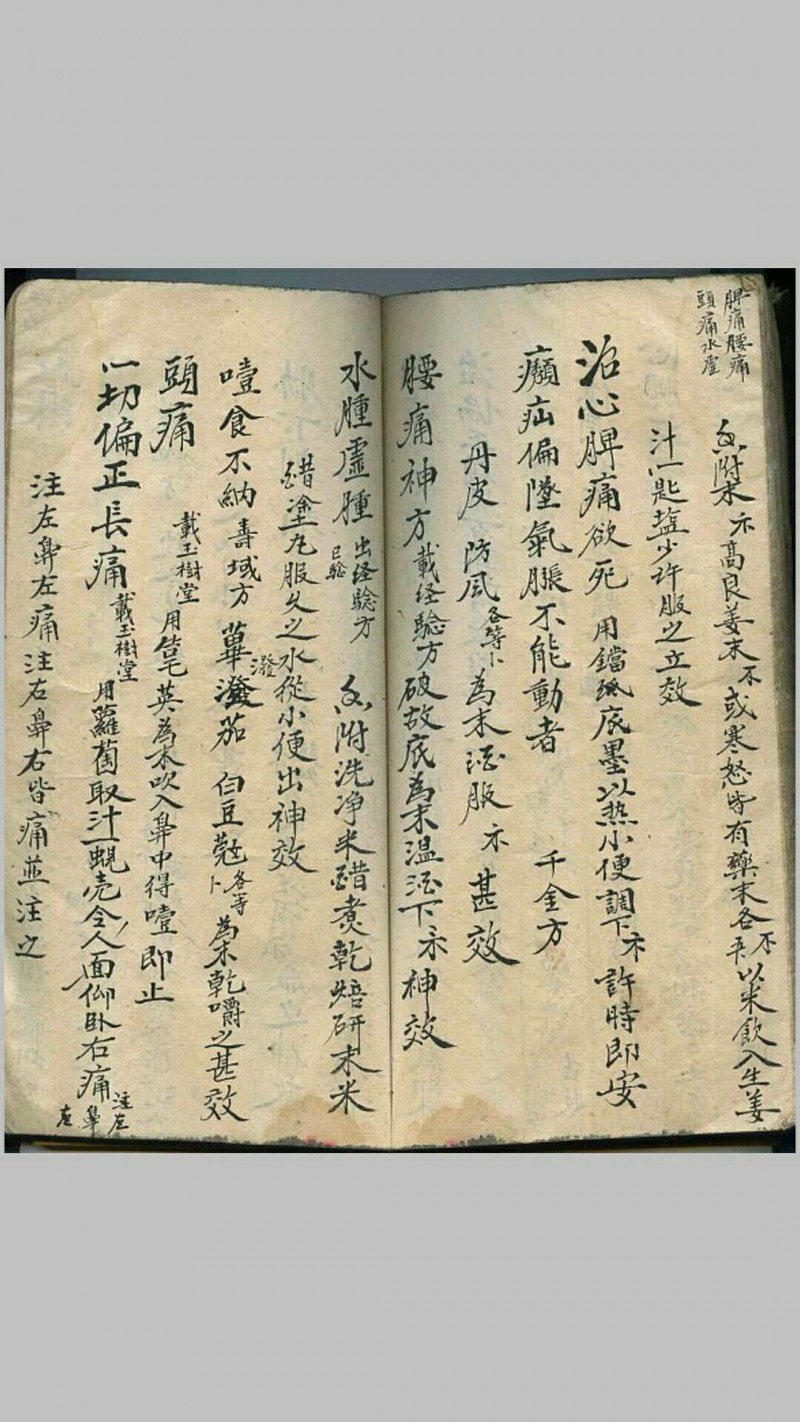 脾痛腰痛
頭痛水虛
附末 高良姜末 或寒怒皆有藥末各 以米飲入生姜
汁一匙塩少許服之立效
治心脾痛欲死 用鐺底墨以热小便調下 許時即安
癩疝偏墜氣脹不能動者 千金方
丹皮 防风 各等 為末酒服 甚效
腰痛神方 載経驗方 破故底為末温酒下 神效
水腫虛腫 出経驗方 已驗 附洗净米醋煑乾焙研末米
醋塗丸服久之水從小便出神效
噎食不納 壽域方 蓽澄茄 白豆 各等 為末乾嚼之甚效
頭痛 載玉樹堂 用 英為末吹入鼻中得噎即止
一切偏正長痛 載玉樹堂 用蘿蔔取汁一蜆壳令人面仰卧右痛注左鼻左
注左鼻左痛注右鼻右皆痛並注之